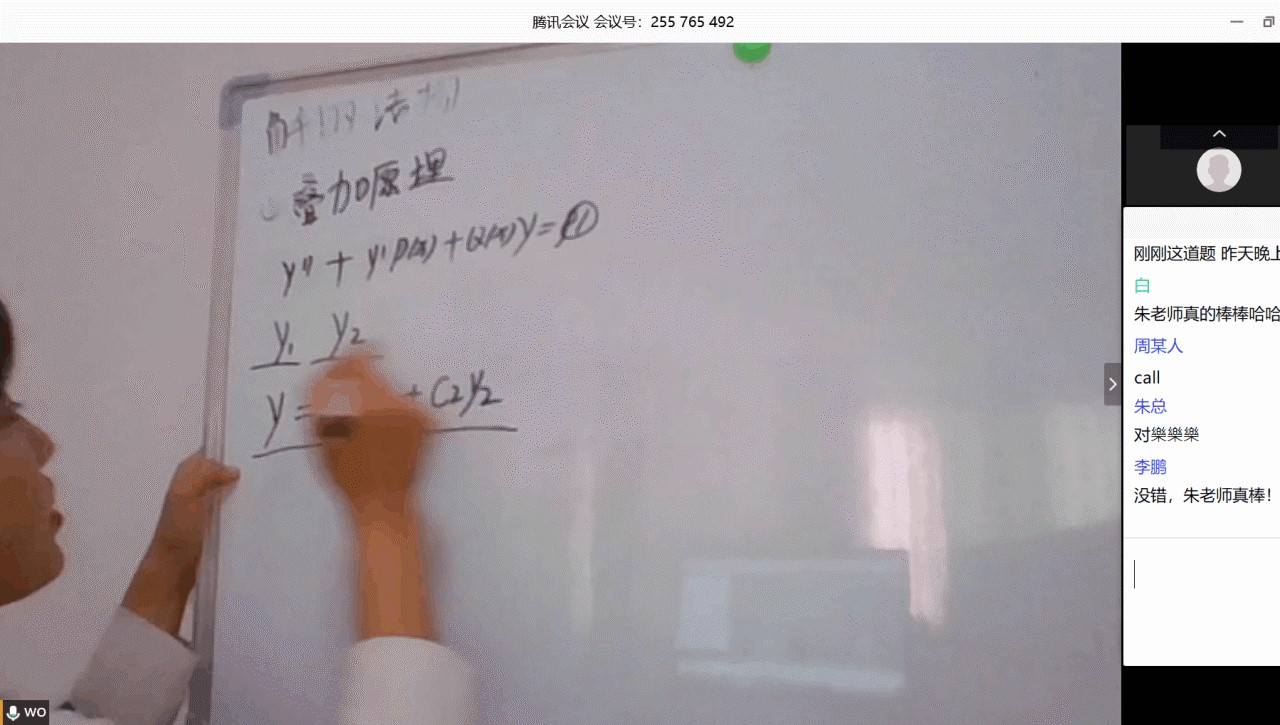 腾讯会议 会议号：255 765 492
叠加原理
y" + y'P(x)+Q(x)y=
y₁ y₂
y = + C₂y₂
刚刚这道题 昨天晚上
白
朱老师真的棒棒哈哈
周某人
call
朱总
对樂樂樂
李鹏
没错，朱老师真棒！
WO